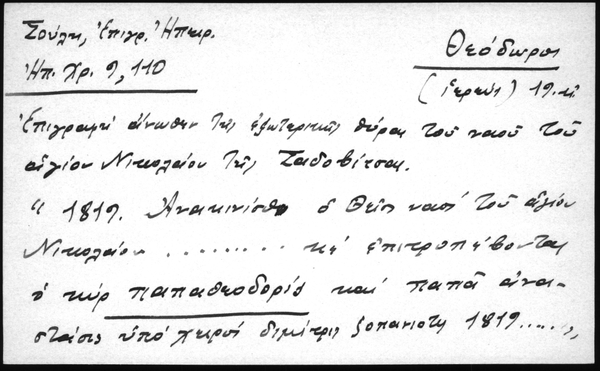 Σούλη, Ἐπιγρ. Ἠπειρ.
Ἠπ. Χρ. 9, 110
Θεόδωρος
(ἱερεύς) 19. αἰ
Ἐπιγραφή ἄνωθεν τῆς ἐξωτερικῆς θύρας τοῦ ναοῦ τοῦ
ἁγίου Νικολάου τῆς Σαδοβίτσας.
" 1819. Ἀνακινίσθη ὁ θεῖος ναός τοῦ ἁγίου
Νικολαου ......... κέ ἐπιτροπέβοντας
ὁ κύρ παπαθεοδορις καί παπᾶ ἀνα-
στάσις ὑπό χειρός διμίτρις ζοπανιοτι 1819.....,,